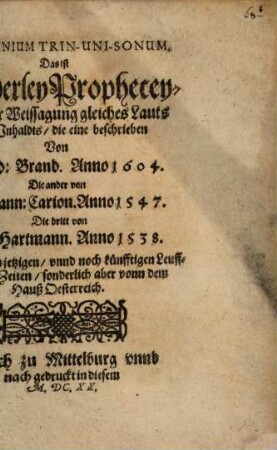 NIUM TRIN-UNI-SONUM,
Das ist
erley Prophecey-
Weissagung gleiches Lauts
Inhaldts / die eine beschrieben
Von
d: Brand. Anno 1604.
Die ander von
ann: Carion. Anno 1547.
Die dritt von
Hartmann. Anno 1538.
jetzigen / vnnd noch künfftigen Leuff-
Zeiten / sonderlich aber vonn dem
Hauß Oesterreich.
ch zu Mittelburg vnnd
nach gedruckt in diesem
M. DC. XX.